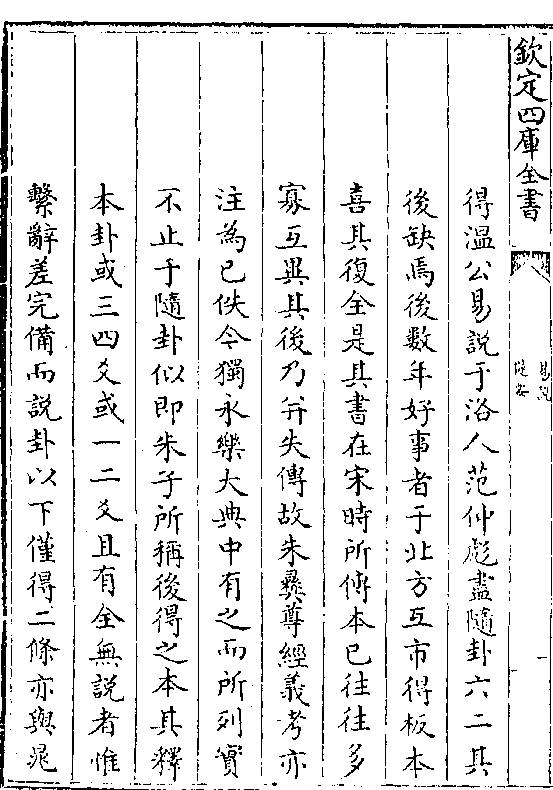 欽定四庫全書
易說
提要
得溫公易說于洛人范仲彪盡隨卦六二其
後缺焉後數年好事者于北方互市得板本
喜其復全是其書在宋時所傳本已往往多
寡互異其後乃并失傳故朱彝尊經義考亦
注為已佚今獨永樂大典中有之而所列實
不止于隨卦似即朱子所稱後得之本其釋
本卦或三四爻或一二爻且有全無說者惟
繫辭差完備而說卦以下僅得二條亦與晁